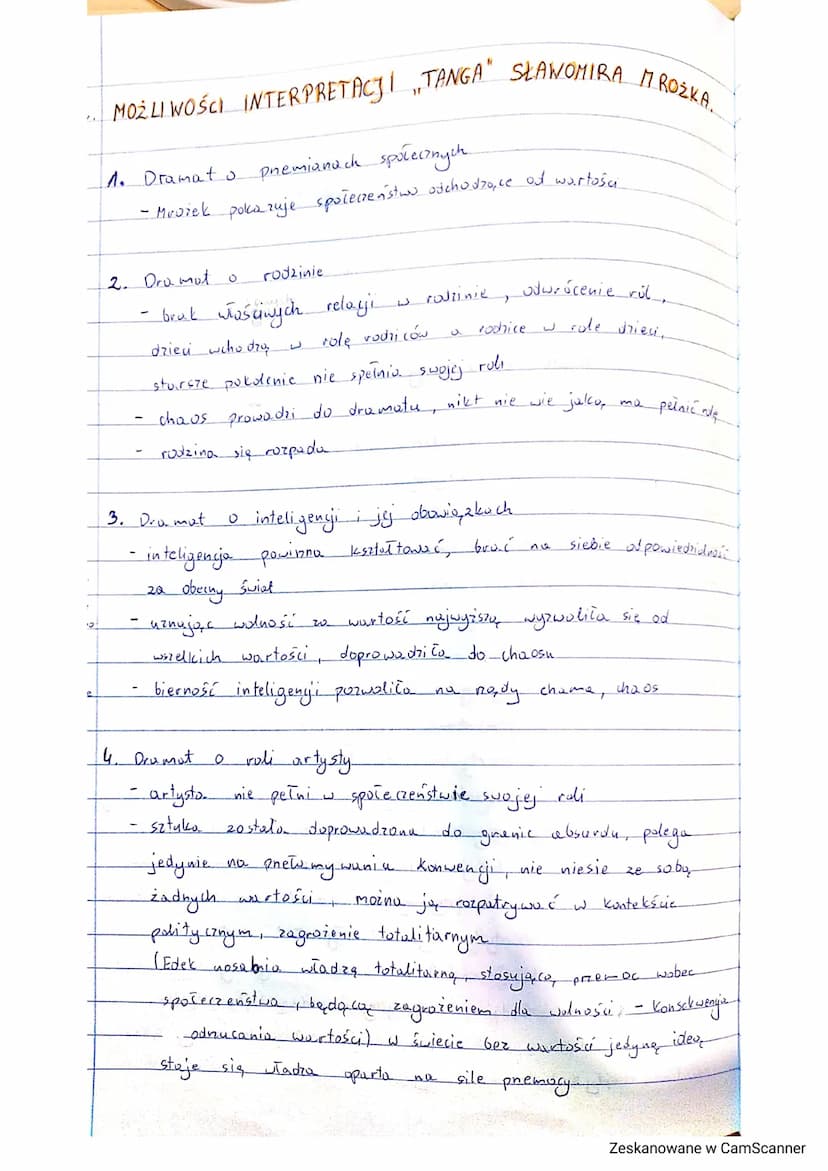 MOŻLIWOŚCI INTERPRETACJI „TANGA" SŁAWOMIRA MROŻKA.
1. Dramat o przemianach społecznych
- Mrożek pokazuje społeczeństwo odchodzące od wartości
2. Dramat o rodzinie
- brak właściwych relacji w rodzinie, odwrócenie ról,
dzieci wchodzą w rolę rodziców a rodzice w role dzieci,
starsze pokolenie nie spełnia swojej roli
- chaos prowadzi do dramatu, nikt nie wie jaką ma pełnić rolę
- rodzina się rozpada
3. Dramat o inteligencji i jej obowiązkach
- inteligencja powinna kształtować, brać na siebie odpowiedzialność
za obecny świat
- uznając wolność za wartość najwyższą wyzwoliła się od
wszelkich wartości, doprowadziła do chaosu
- bierność inteligencji pozwoliła na rządy chama, chaos
4. Dramat o roli artysty
- artysta nie pełni w społeczeństwie swojej roli
- sztuka została doprowadzona do granic absurdu, polega
jedynie na przełamywaniu konwencji, nie niesie ze sobą
żadnych wartości, można ją rozpatrywać w kontekście
politycznym, zagrożenie totalitarnym
(Edek uosabia władzę totalitarną, stosującą przemoc wobec
społeczeństwa, będącą zagrożeniem dla wolności, - konsekwencja
odrzucania wartości) w świecie bez wartości jedyną ideą
staje się władza oparta na sile przemocy.
Zeskanowane w CamScanner